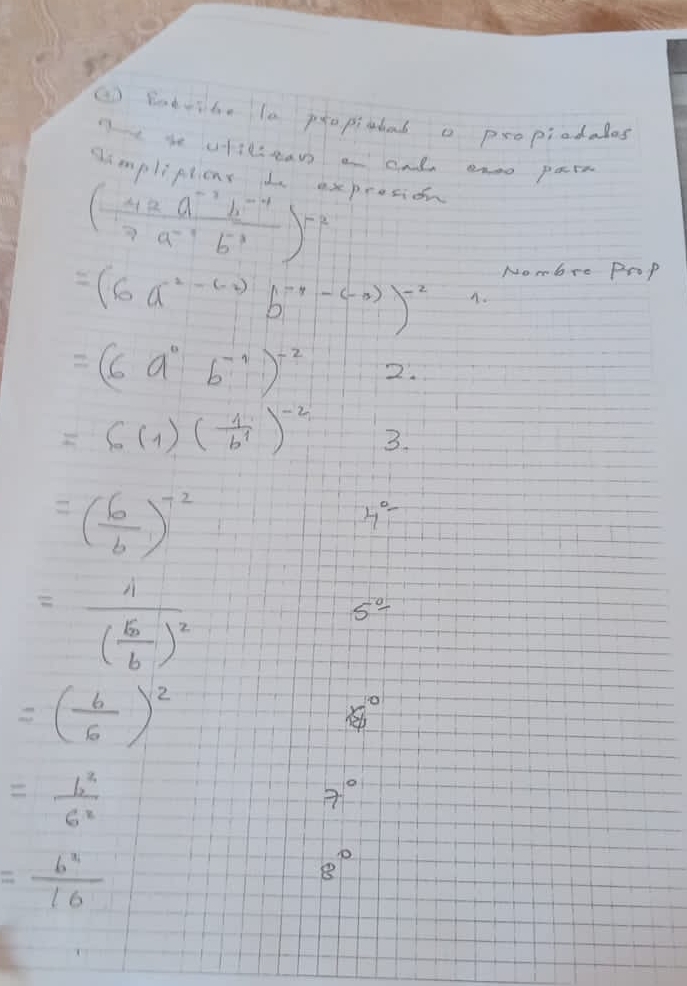 la propiedad o propiedades
que se utilizan en cada caso para
simplificar la expresión
( 42 a⁻ b⁻ / 7 a⁻ b⁻ )⁻²
Nombre Prop
= (6 a²⁻⁽⁻²⁾ b⁻⁴⁻⁽⁻³⁾)⁻² 1.
= (6 a⁰ b⁻¹)⁻² 2.
= 6(1)(1/b¹)⁻² 3.
= (6/b)⁻² 4º
= 1/(6/b)² 5º
= (b/6)² º
= b²/6² 7º
= b²/16 8º